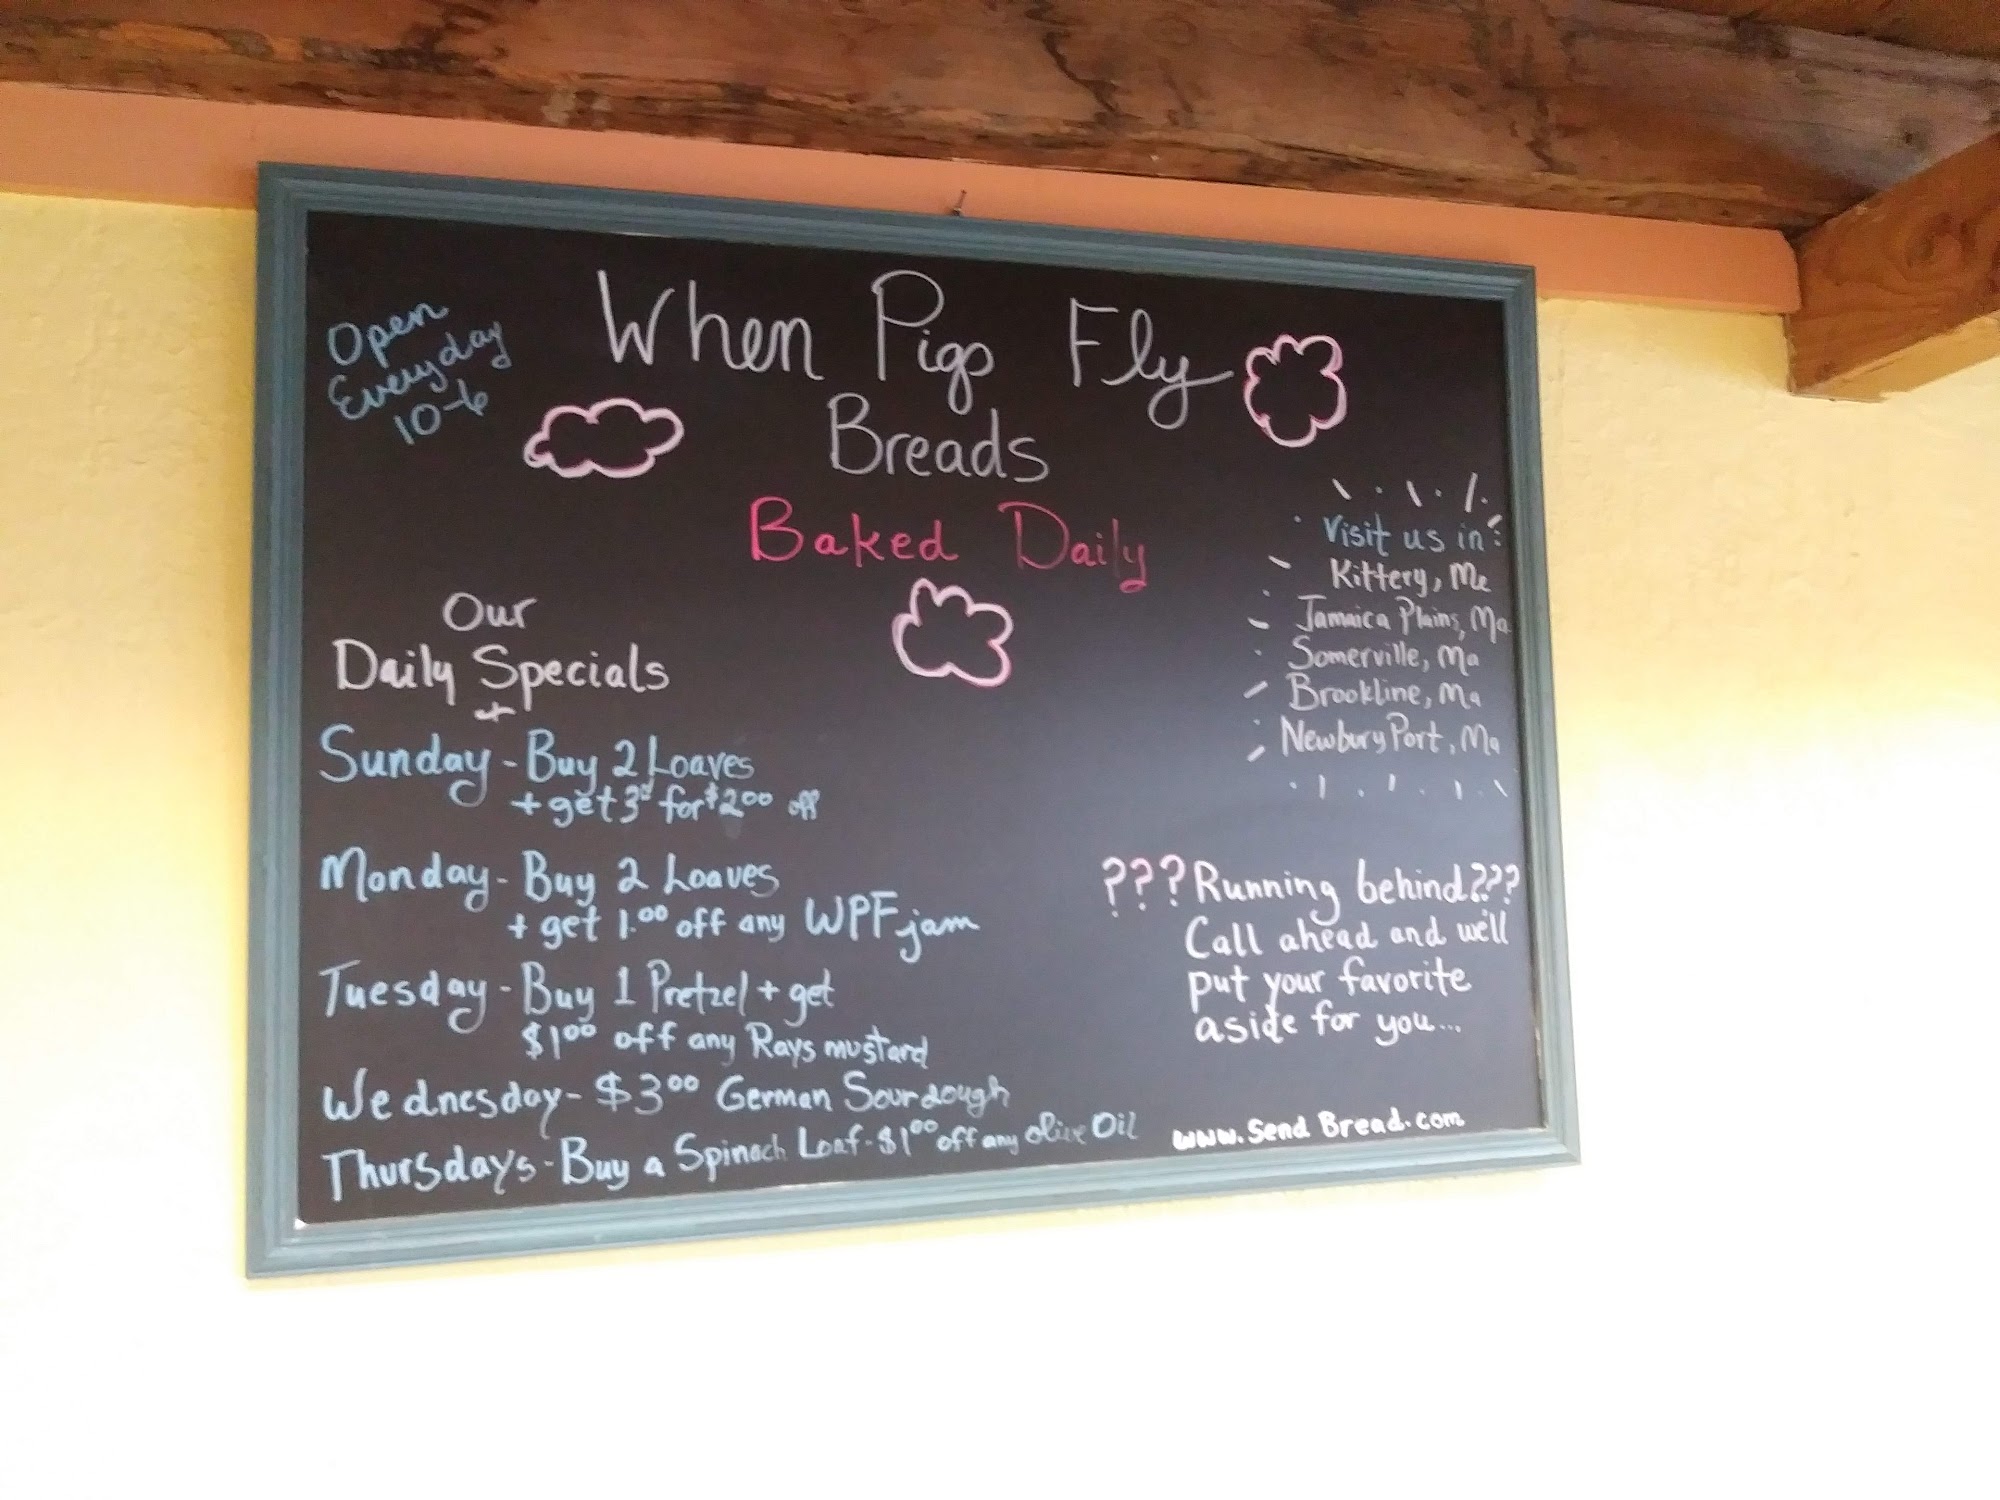 Open
Everyday
10-6
When Pigs Fly
Breads
Baked Daily
Our
Daily Specials
+
Sunday - Buy 2 Loaves
+ get 3rd for $2.00 off
Monday - Buy 2 Loaves
+ get 1.00 off any WPF jam
Tuesday - Buy 1 Pretzel + get
$1.00 off any Rays mustard
Wednesday - $3.00 German Sourdough
Thursdays - Buy a Spinach Loaf - $1.00 off any olive Oil
Visit us in:
Kittery, Me
Jamaica Plains, Ma
Somerville, Ma
Brookline, Ma
NewburyPort, Ma
???Running behind???
Call ahead and we'll
put your favorite
aside for you...
www.SendBread.com